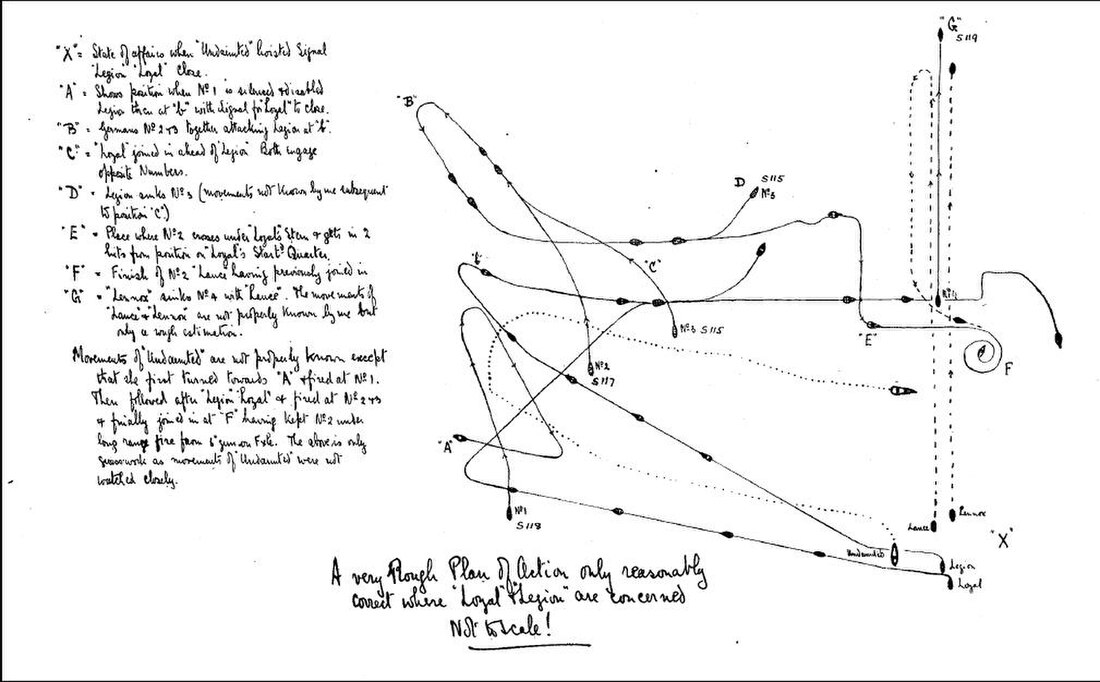 "X" = State of affairs when "Undaunted" hoisted Signal
"Legion" "Loyal" Close.
"A" = Shows position when No 1 is silenced & disabled
Legion then at "b" with signal for "Loyal" to close.
"B" = Germans No 2 & 3 together attacking Legion at "b".
"C" = "Loyal" joined in ahead of "Legion" Both engage
opposite Numbers.
"D" = Legion sinks No 3 (movements not known by me subsequent
to position "C")
"E" = Place where No 2 crosses under "Loyal's" Stern & gets in 2
hits from position on "Loyal's" Starbd Quarter.
"F" = Finish of No 2 "Lance" having previously joined in
"G" = "Lennox" sinks No 4 with "Lance". The movements of
"Lance" & "Lennox" are not properly known by me but
only a rough estimation!
Movements of "Undaunted" are not properly known except
that she first turned towards "A" & fired at No 1.
Then followed after "Legion" "Loyal" & fired at No 2 & 3
& finally joined in at "F" having kept No 2 under
long range fire from 6" gun on Fxle. The above is only
guesswork as movements of "Undaunted" were not
watched closely.
"G"
S119
"B"
D
S115
No 3
"b"
"C"
No 4
No 3 S115
"E"
F
No 2
S117
"A"
No 1
S118
Lance
Lennox
"X"
Undaunted
Legion
Loyal
A very Rough Plan of Action only reasonably
correct where "Loyal" & "Legion" are concerned
Not to scale!